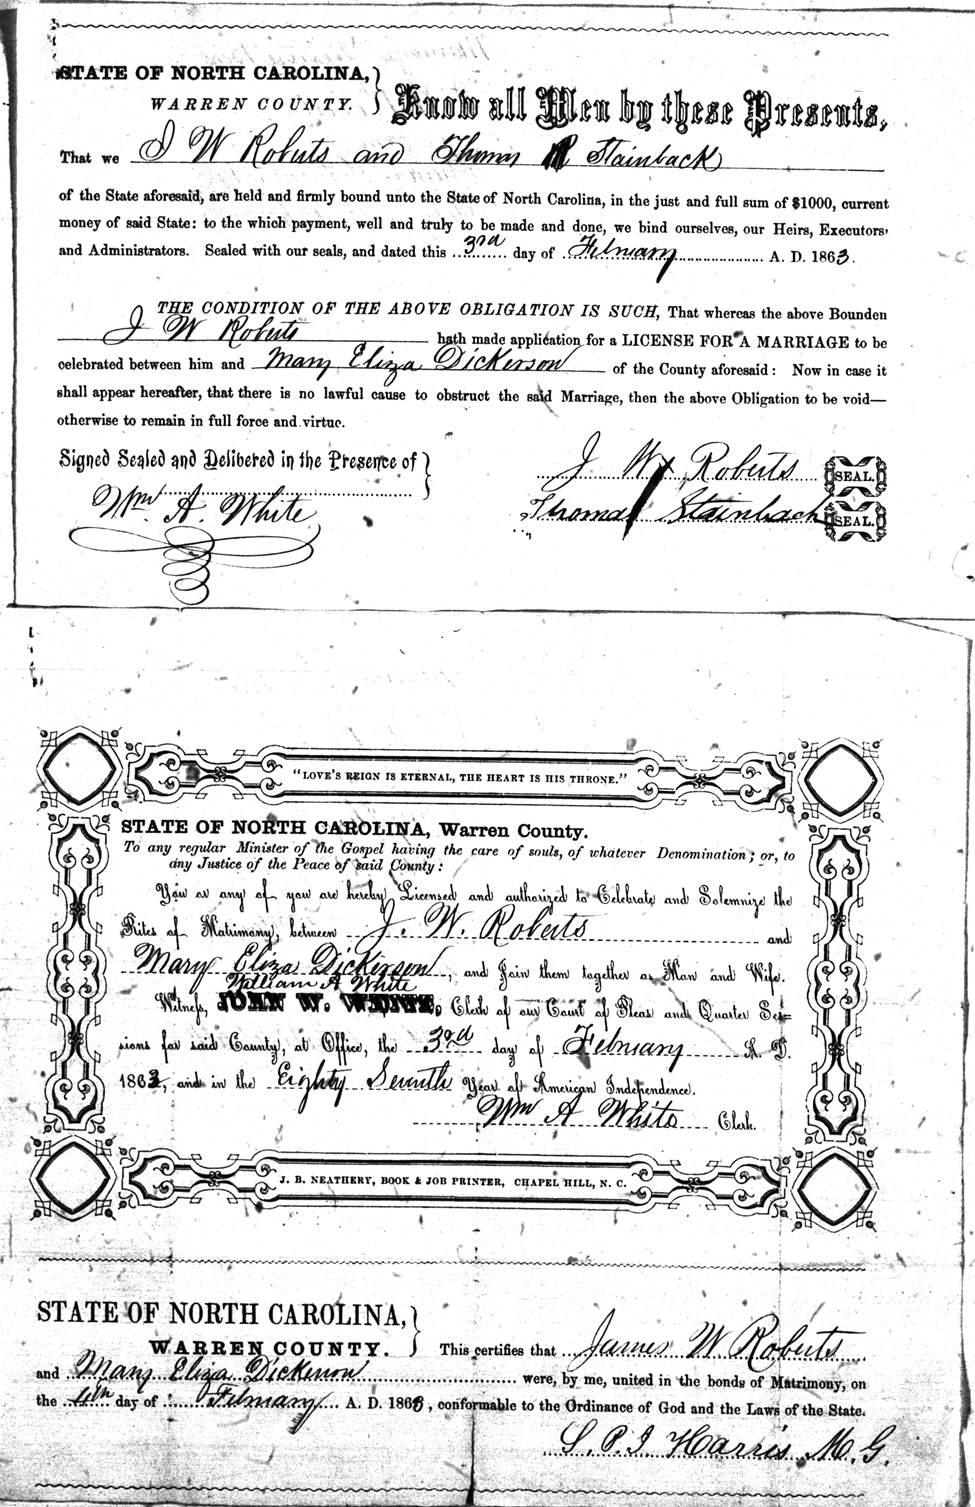 STATE OF NORTH CAROLINA,
WARREN COUNTY.
Know all Men by these Presents,
That we J W Roberts and Thomas R Stainback
of the State aforesaid, are held and firmly bound unto the State of North Carolina, in the just and full sum of $1000, current
money of said State: to the which payment, well and truly to be made and done, we bind ourselves, our Heirs, Executors,
and Administrators. Sealed with our seals, and dated this 3rd day of February A. D. 1863.
THE CONDITION OF THE ABOVE OBLIGATION IS SUCH, That whereas the above Bounden
J W Roberts hath made application for a LICENSE FOR A MARRIAGE to be
celebrated between him and Mary Eliza Dickerson of the County aforesaid: Now in case it
shall appear hereafter, that there is no lawful cause to obstruct the said Marriage, then the above Obligation to be void—
otherwise to remain in full force and virtue.
Signed Sealed and Delibered in the Presence of
J W Roberts SEAL.
Wm. A. White
Thomas Stainback SEAL.
"LOVE'S REIGN IS ETERNAL, THE HEART IS HIS THRONE."
STATE OF NORTH CAROLINA, Warren County.
To any regular Minister of the Gospel having the care of souls, of whatever Denomination; or, to
any Justice of the Peace of said County:
You or any of you are hereby Licensed and authorized to Celebrate and Solemnize the
Rites of Matrimony, between J. W. Roberts and
Mary Eliza Dickerson, and Join them together as Man and Wife.
William A White
Witness, JOHN W. WHITE, Clerk of our Court of Pleas and Quarter Ses=
sions for said County, at Office, the 3rd day of February A. D.
1863, and in the Eighty Seventh Year of American Independence.
Wm A White Clerk.
J. B. NEATHERY, BOOK & JOB PRINTER, CHAPEL HILL, N. C.
STATE OF NORTH CAROLINA,
WARREN COUNTY.
This certifies that James W Roberts
and Mary Eliza Dickerson were, by me, united in the bonds of Matrimony, on
the 4th day of February A. D. 1863, conformable to the Ordinance of God and the Laws of the State.
S. P. J. Harris M. G.